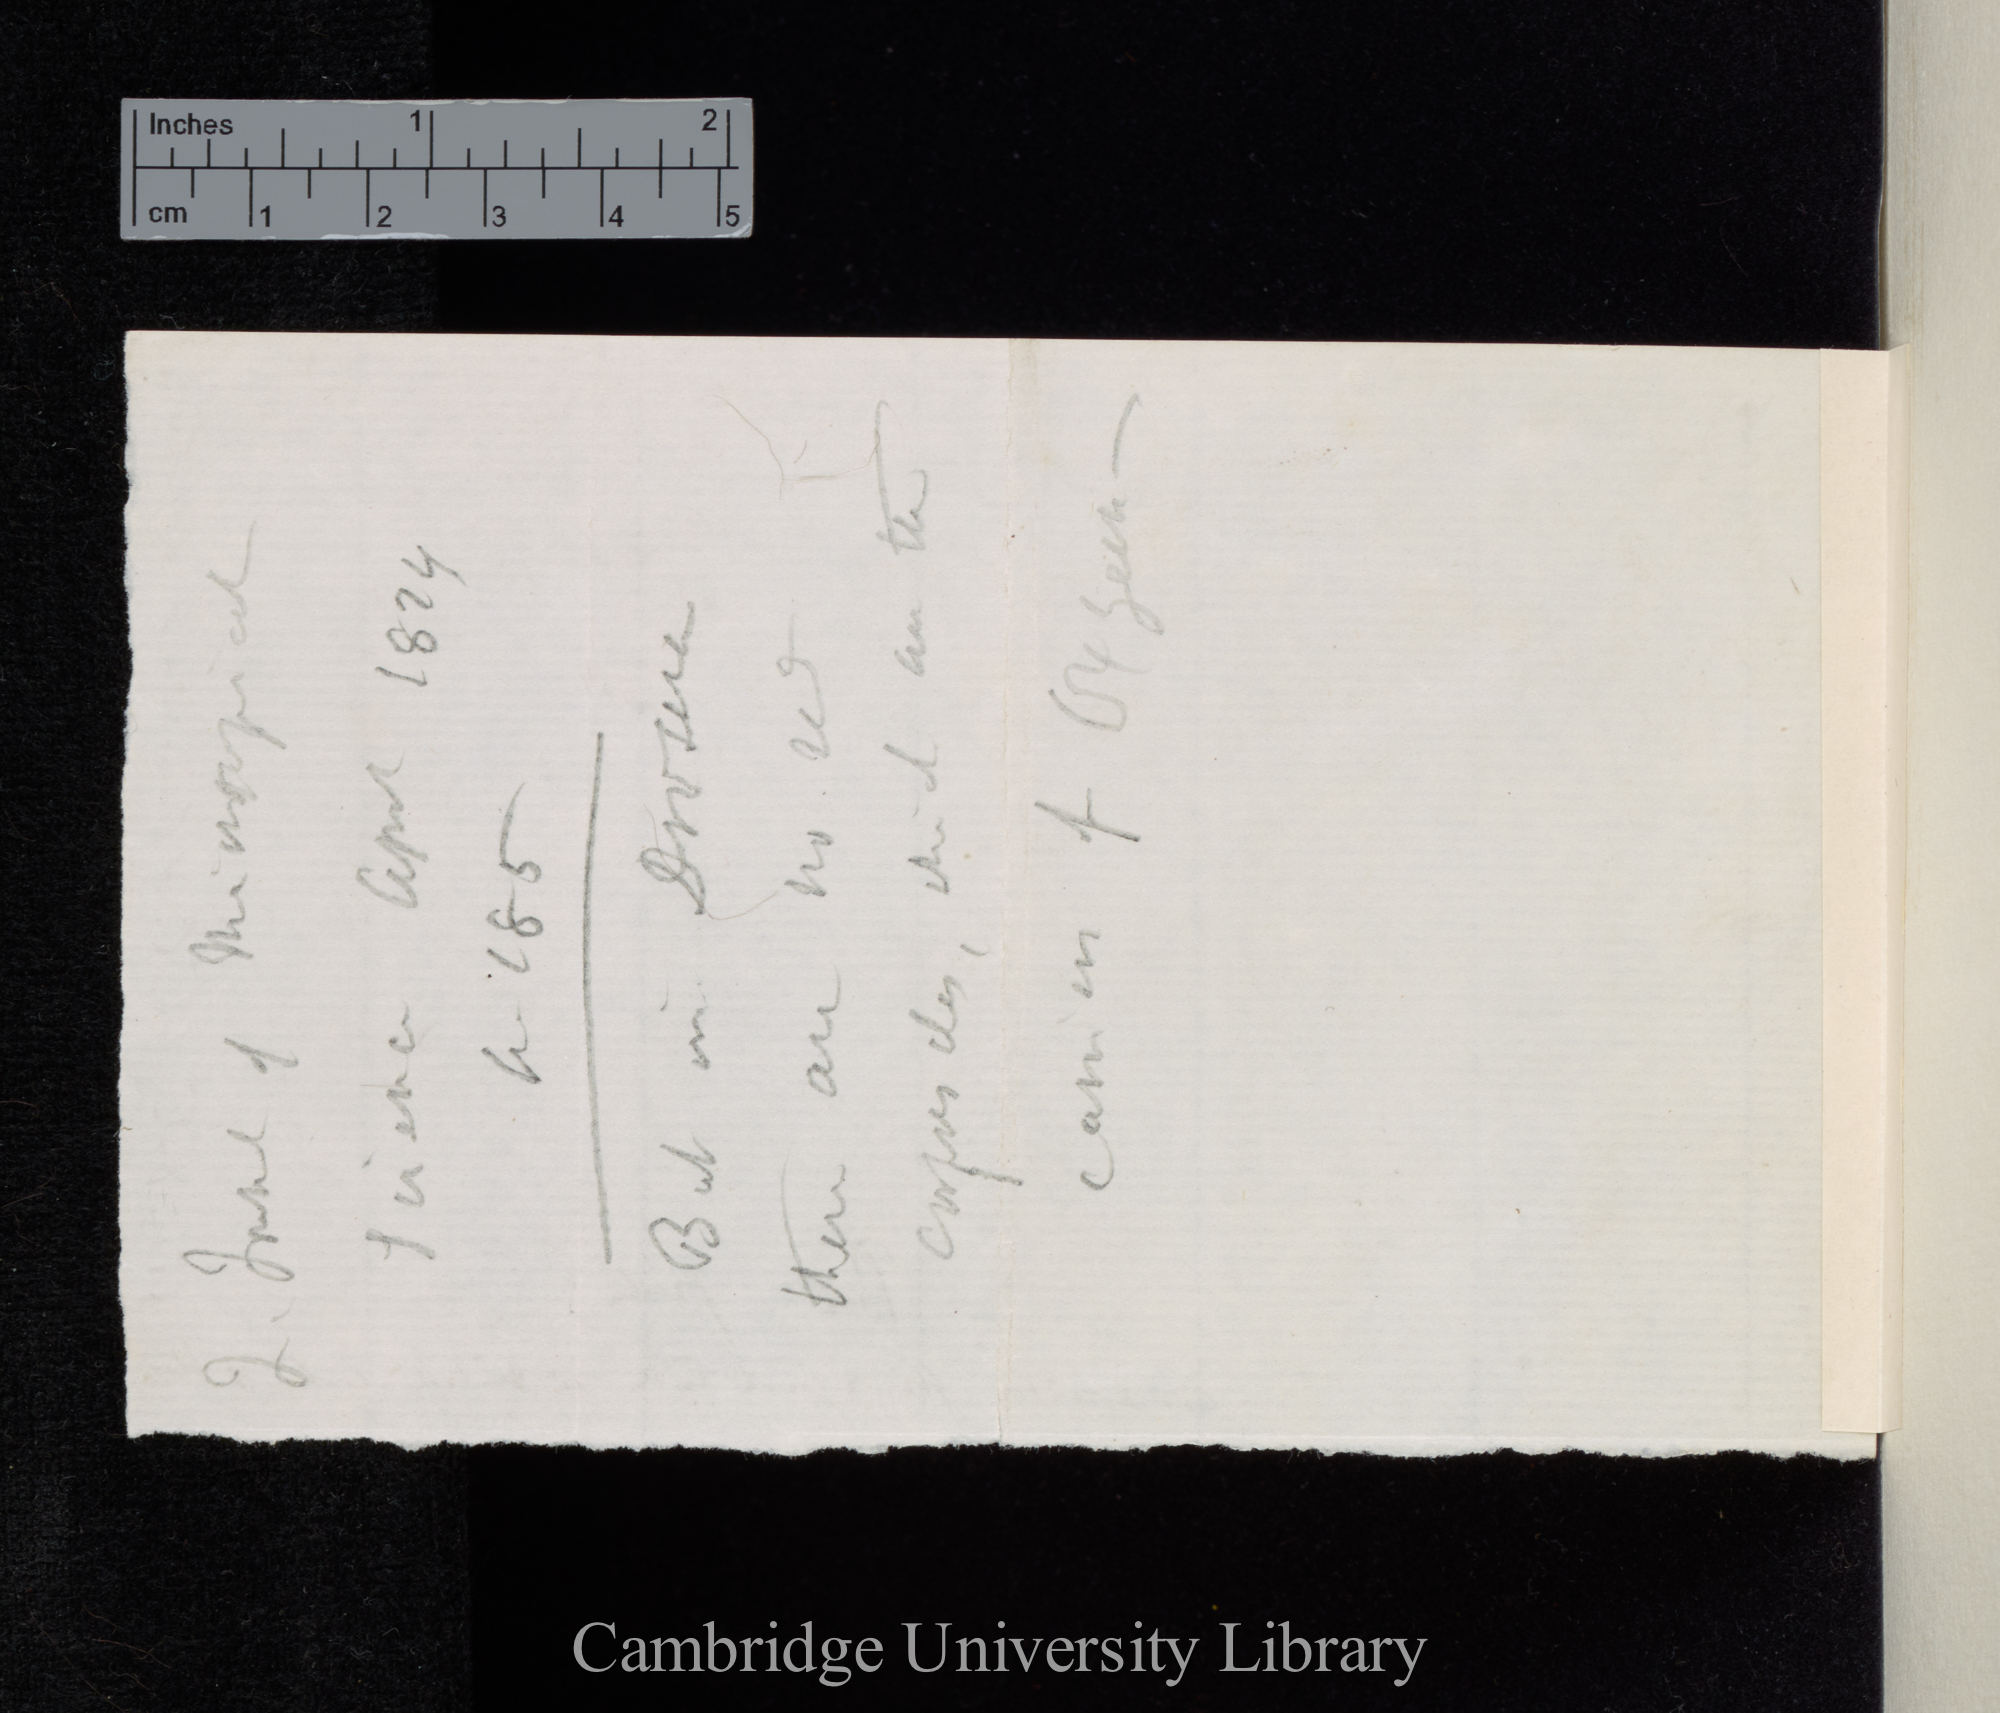 Inches 1 2
cm 1 2 3 4 5
J. Journal of Microscopical
Science April 1874
p. 185
But in Drosera
there are no red
corpuscles, which are the
carriers of Oxygen—
Cambridge University Library